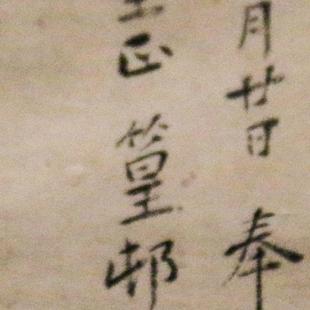 月廿日奉
正篁邨